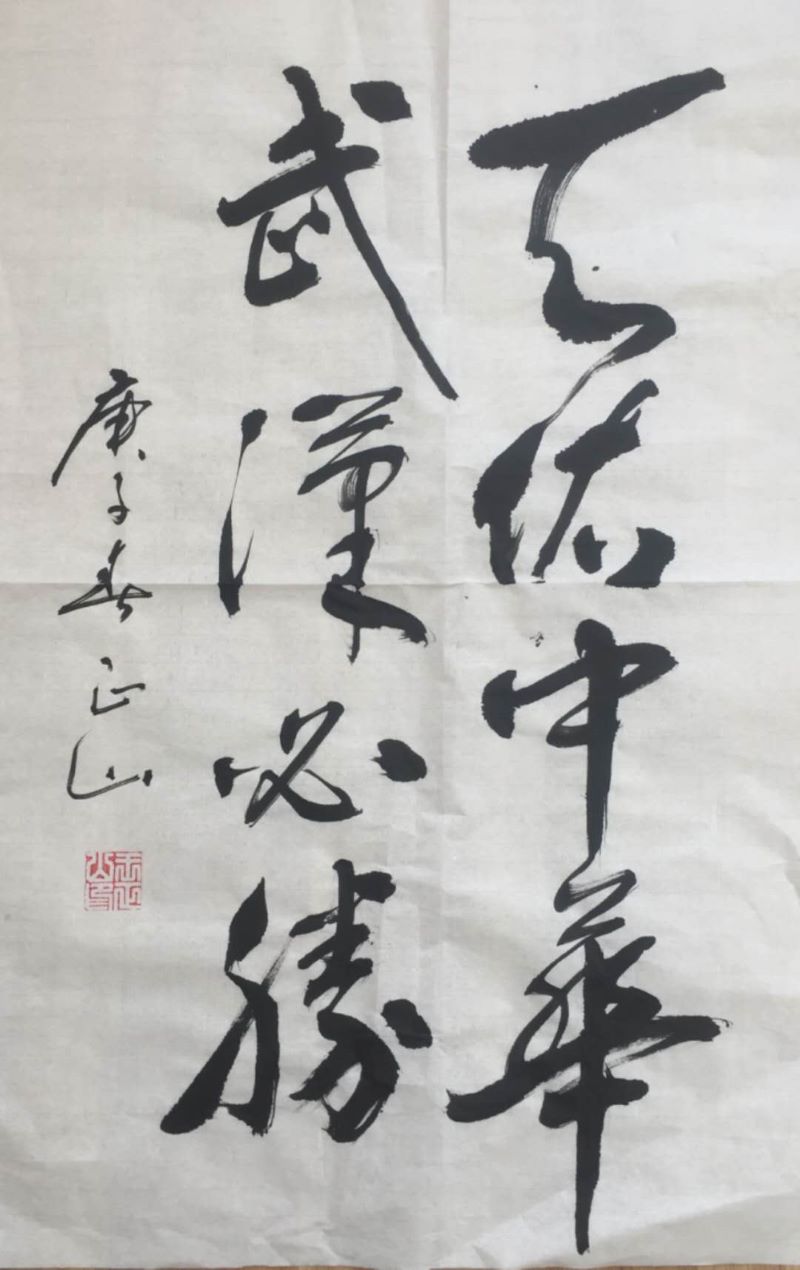 天佑中華
武漢必勝
庚子春正山